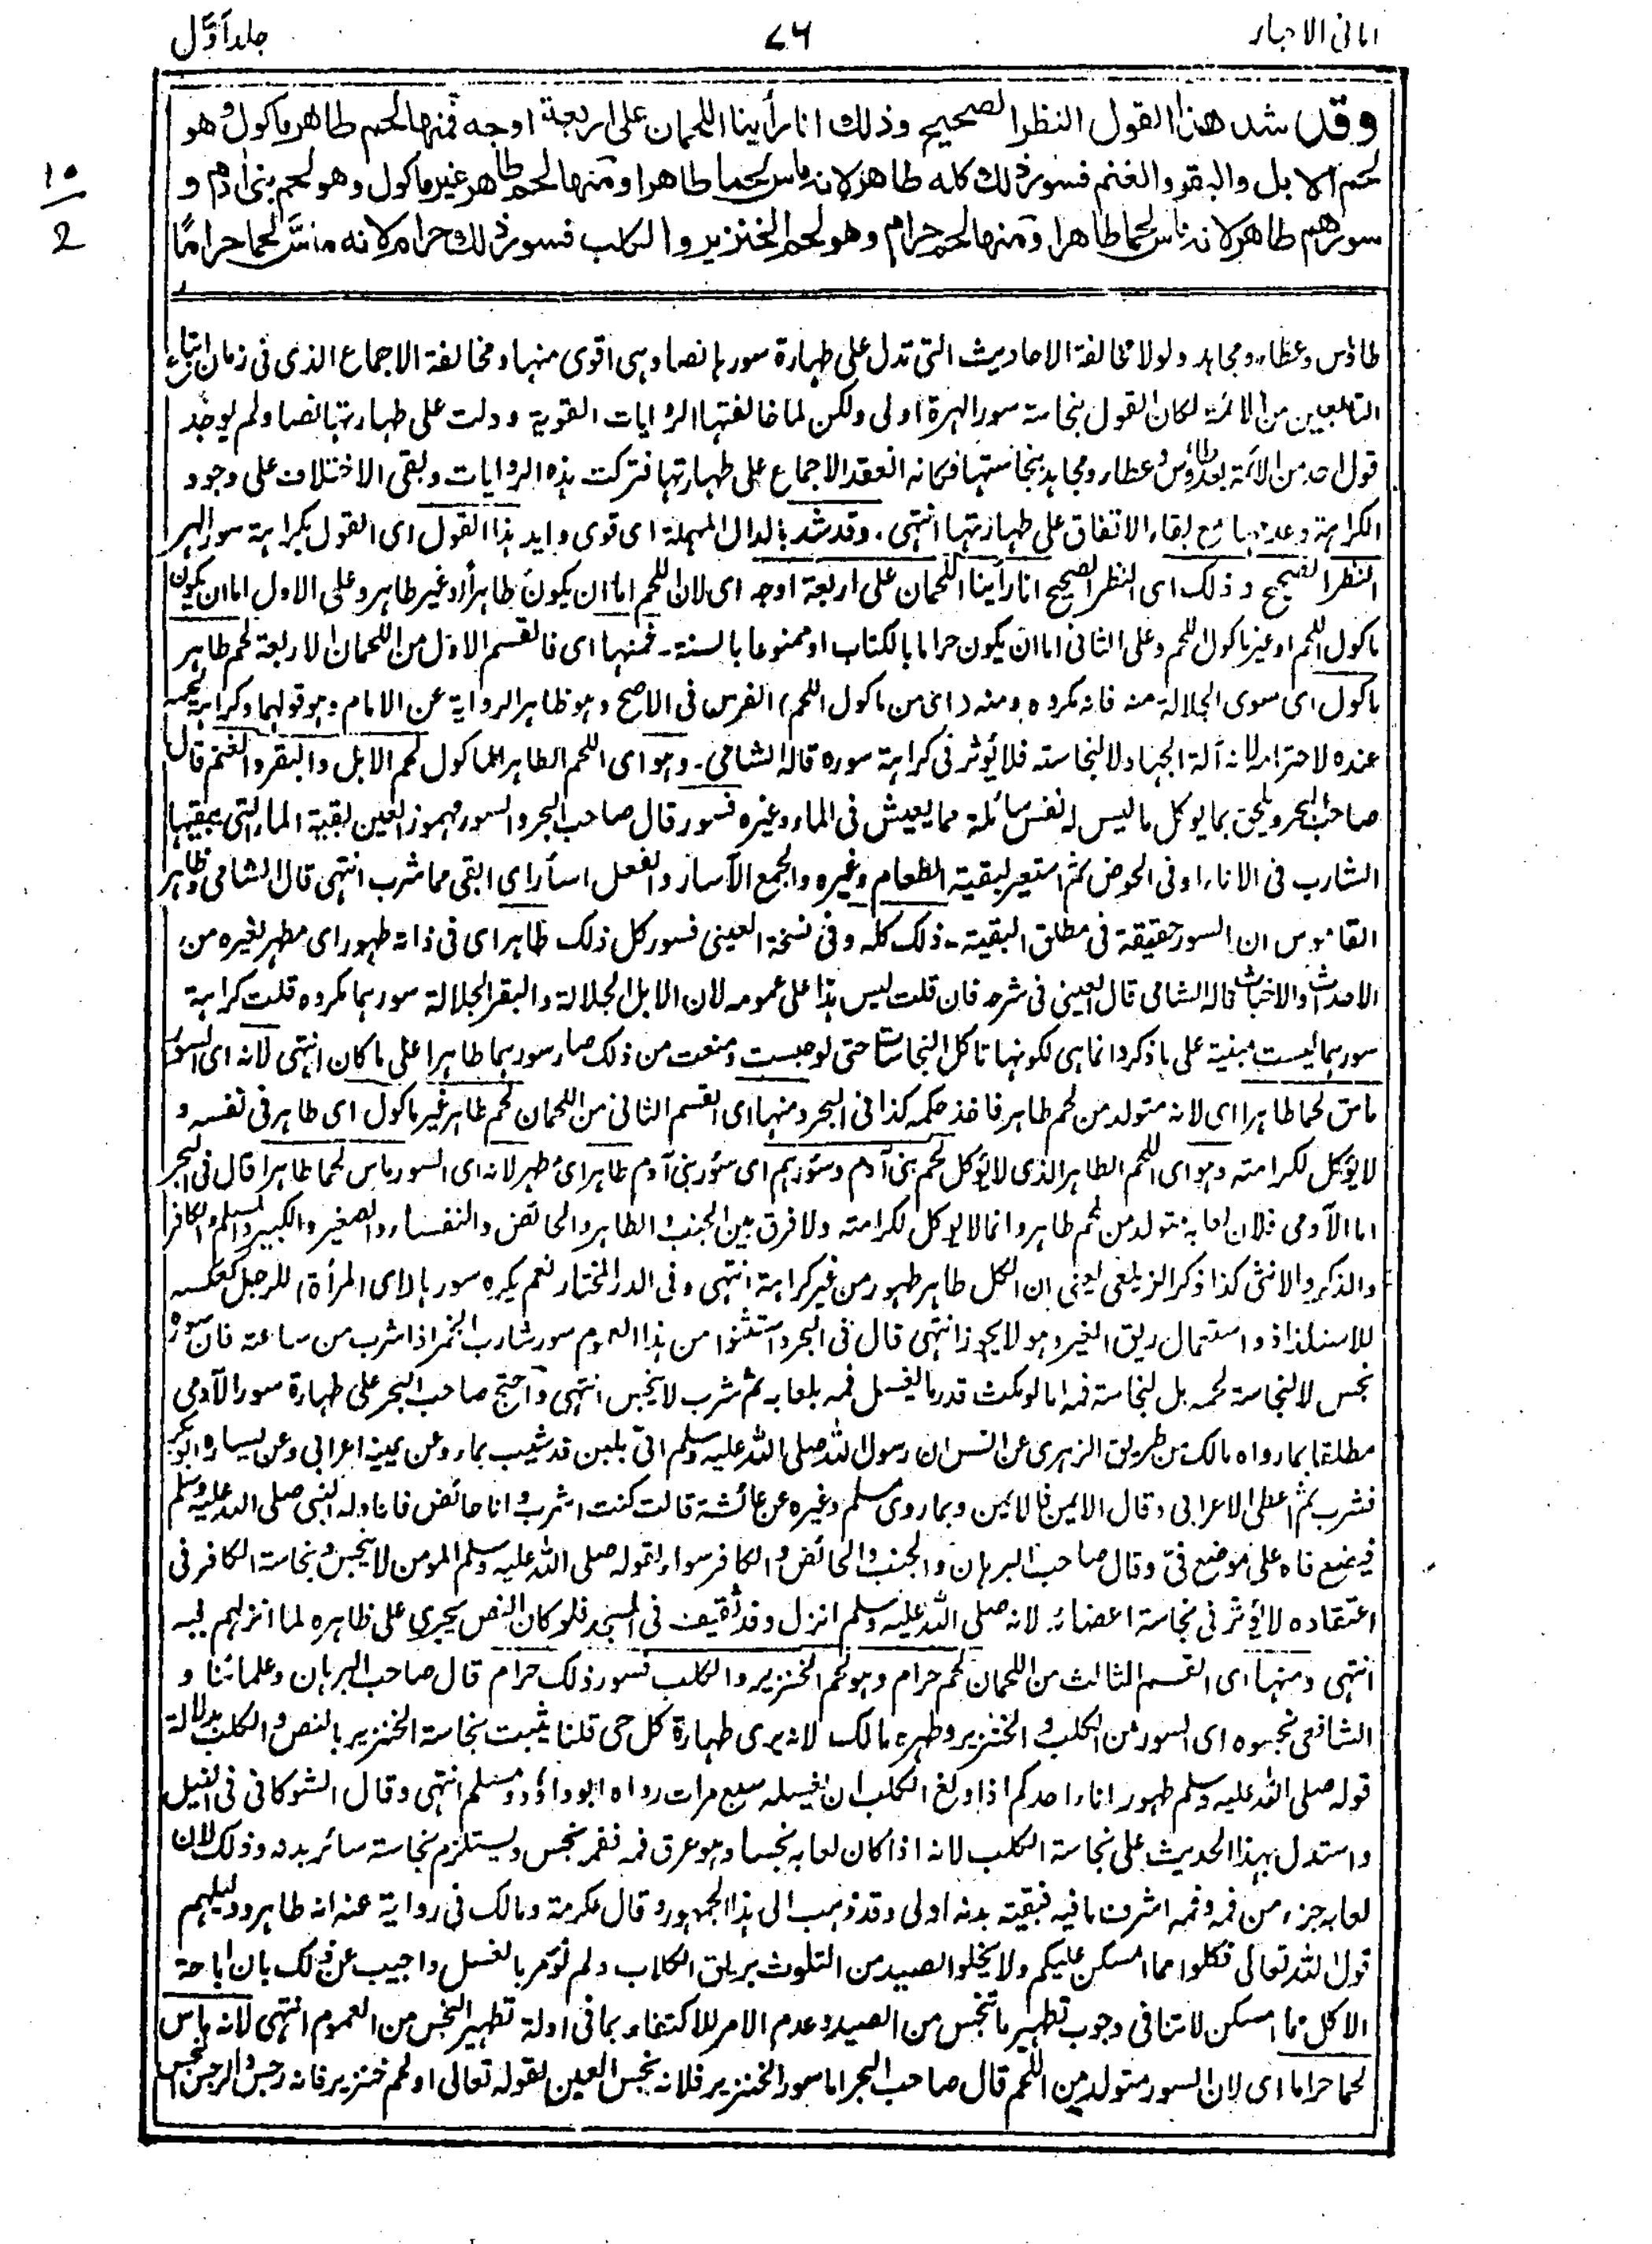 امانی الاحبار
۷۶
جلد اوّل
وقد شد هذا القول النظر الصحيح وذلك انا رأينا اللحمان على اربعة اوجه فمنها لحم طاهر ماكول وهو
لحم الابل والبقر والغنم فسور ذلك كله طاهر لانه ماس لحما طاهرا ومنها لحم طاهر غير ماكول وهو لحم بنى ادم و
سورهم طاهر لانه ماس لحما طاهرا ومنها لحم حرام وهو لحم الخنزير والكلب فسور ذلك حرام لانه ماس لحما حراما
۱۰
2
طاؤس وعطاء ومجاهد ولولا مخالفة الاحاديث التى تدل على طهارة سورها نصا وهى اقوى منها ومخالفة الاجماع الذى فى زمان اتباع
التابعين من الائمة لكان القول بنجاسة سور الهرة اولى ولكن لما خالفتها الروايات القوية ودلت على طهارتها نصا ولم يوجد
قول احد من الائمة بعد طاؤس وعطاء ومجاهد بنجاستها فكانه انعقد الاجماع على طهارتها فتركت هذه الروايات وبقى الاختلاف على وجود
الكراهة وعدمها مع بقاء الاتفاق على طهارتها انتهى. وقد شد بالدال المهملة اى قوى وايد هذا القول اى القول بكراهة سور الهر
النظر الصحيح وذلك اى النظر الصحيح انا رأينا اللحمان على اربعة اوجه اى لان اللحم اما ان يكون طاهرا او غير طاهر وعلى الاول اما ان يكون
ماكول اللحم او غير ماكول اللحم وعلى الثانى اما ان يكون حراما بالكتاب او ممنوعا بالسنة۔ فمنها اى فالقسم الاول من اللحمان الاربعة لحم طاهر
ماكول اى سوى الجلالة منه فانه مكروه ومنه (اى من ماكول اللحم) الفرس فى الاصح وهو ظاهر الرواية عن الامام وهو قولهما وكراهة لحمه
عنده لاحترامه لانه آلة الجهاد لا لنجاسته فلا يؤثر فى كراهة سوره قاله الشامى۔ وهو اى اللحم الطاهر الماكول لحم الابل والبقر والغنم قال
صاحب البحر ويلحق بما يوكل ما ليس له نفس سائلة مما يعيش فى الماء وغيره فسور قال صاحب البحر والسور مهموز العين بقية الماء التى يبقيها
الشارب فى الاناء او فى الحوض ثم استعير لبقية الطعام وغيره والجمع الآسار والفعل اسأر اى ابقى مما شرب انتهى قال الشامى وظاهر
القاموس ان السور حقيقة فى مطلق البقية۔ ذلك كله وفى نسخة العينى فسور كل ذلك طاهر اى فى ذاته طهور اى مطهر لغيره من
الاحداث والاخباث قاله الشامى قال العينى فى شرحه فان قلت ليس هذا على عمومه لان الابل الجلالة والبقر الجلالة سورهما مكروه قلت كراهة
سورهما ليست مبنية على ما ذكر وانما هى لكونها تاكل النجاسات حتى لو حبست ومنعت من ذلك صار سورهما طاهرا على ما كان انتهى لانه اى السور
ماس لحما طاهرا اى لانه متولد من لحم طاهر فاخذ حكمه كذا فى البحر ومنها اى القسم الثانى من اللحمان لحم طاهر غير ماكول اى طاهر فى نفسه و
لا يؤكل لكرامته وهو اى اللحم الطاهر الذى لا يؤكل لحم بنى آدم وسؤرهم اى سؤر بنى آدم طاهر اى مطهر لانه اى السور ماس لحما طاهرا قال فى البحر
اما الآدمى فلان لعابه متولد من لحم طاهر وانما لا يوكل لكرامته ولا فرق بين الجنب والطاهر والحائض والنفساء والصغير والكبير والمسلم والكافر
والذكر والانثى كذا ذكر الزيلعى يعنى ان الكل طاهر طهور من غير كراهة انتهى وفى الدر المختار نعم يكره سورها (اى المرأة) للرجل كعكسه
للاستلذاذ واستعمال ريق الغير وهو لا يجوز انتهى قال فى البحر واستثنوا من هذا العموم سور شارب الخمر اذا شرب من ساعته فان سوره
نجس لا لنجاسة لحمه بل لنجاسة فمه اما لو مكث قدر ما يغسل فمه بلعابه ثم شرب لا ينجس انتهى واحتج صاحب البحر على طهارة سور الآدمى
مطلقا بما رواه مالك من طريق الزهرى عن انس ان رسول الله صلى الله عليه وسلم اتى بلبن قد شيب بماء وعن يمينه اعرابى وعن يساره ابو بكر
فشرب ثم اعطى الاعرابى وقال الايمن فالايمن وبما روى مسلم وغيره عن عائشة قالت كنت اشرب وانا حائض فاناوله النبى صلى الله عليه وسلم
فيضع فاه على موضع فىّ وقال صاحب البرهان والجنب والحائض والكافر سواء لقوله صلى الله عليه وسلم المومن لا ينجس ونجاسة الكافر فى
اعتقاده لا يؤثر فى نجاسة اعضائه لانه صلى الله عليه وسلم انزل وفد ثقيف فى المسجد فلو كان النص يجرى على ظاهره لما انزلهم فيه
انتهى ومنها اى القسم الثالث من اللحمان لحم حرام وهو لحم الخنزير والكلب فسور ذلك حرام قال صاحب البرهان وعلمائنا و
الشافعى نجسوه اى السور من الكلب والخنزير وطهره مالك لانه يرى طهارة كل حى قلنا يثبت نجاسة الخنزير بالنص والكلب بدلالة
قوله صلى الله عليه وسلم طهور اناء احدكم اذا ولغ الكلب ان يغسله سبع مرات رواه ابو داؤد ومسلم انتهى وقال الشوكانى فى النيل
واستدل بهذا الحديث على نجاسة الكلب لانه اذا كان لعابه نجسا وهو عرق فمه ففمه نجس ويستلزم نجاسة سائر بدنه وذلك لان
لعابه جزء من فمه وفمه اشرف ما فيه فبقية بدنه اولى وقد ذهب الى هذا الجمهور وقال عكرمة ومالك فى رواية عنه انه طاهر ودليلهم
قول الله تعالى فكلوا مما امسكن عليكم ولا يخلو الصيد من التلوث بريق الكلاب ولم نؤمر بالغسل واجيب عن ذلك بان اباحة
الاكل مما امسكن لا تنافى وجوب تطهير ما تنجس من الصيد وعدم الامر للاكتفاء بما فى ادلة تطهير النجس من العموم انتهى لانه ماس
لحما حراما اى لان السور متولد من اللحم قال صاحب البحر اما سور الخنزير فلانه نجس العين لقوله تعالى او لحم خنزير فانه رجس والرجس النجس